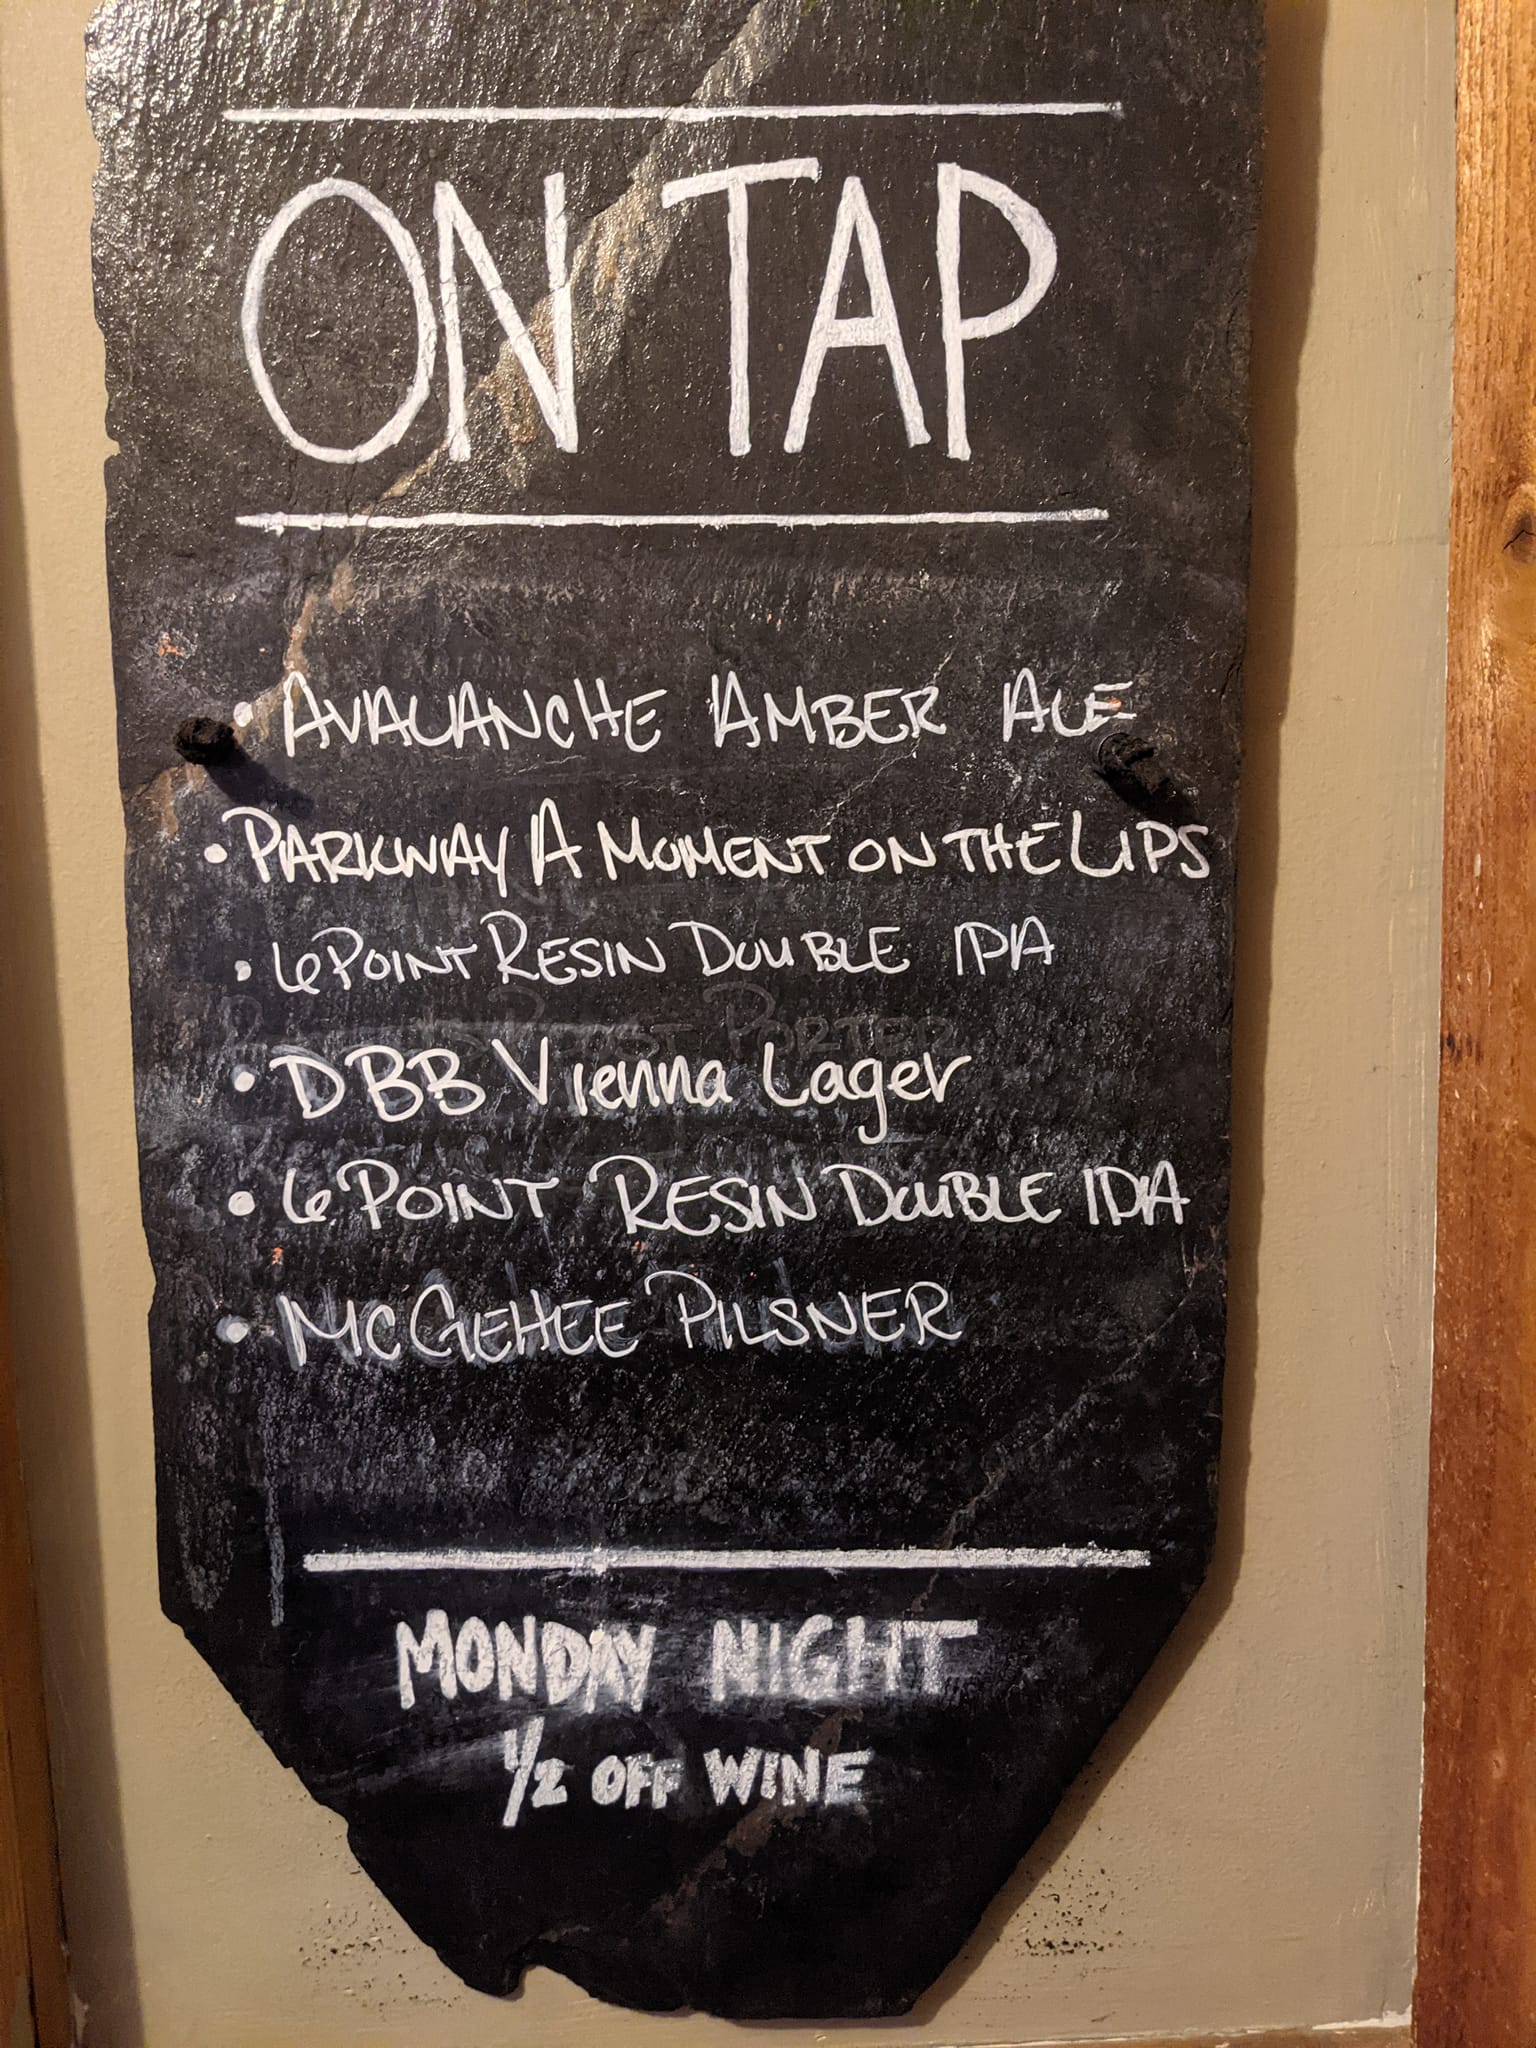 ON TAP
• AVALANCHE AMBER ALE
• PARKWAY A MOMENT ON THE LIPS
• 6 POINT RESIN DOUBLE IPA
• DBB Vienna Lager
• 6 POINT RESIN DOUBLE IPA
• MCGEHEE PILSNER
MONDAY NIGHT
1/2 OFF WINE